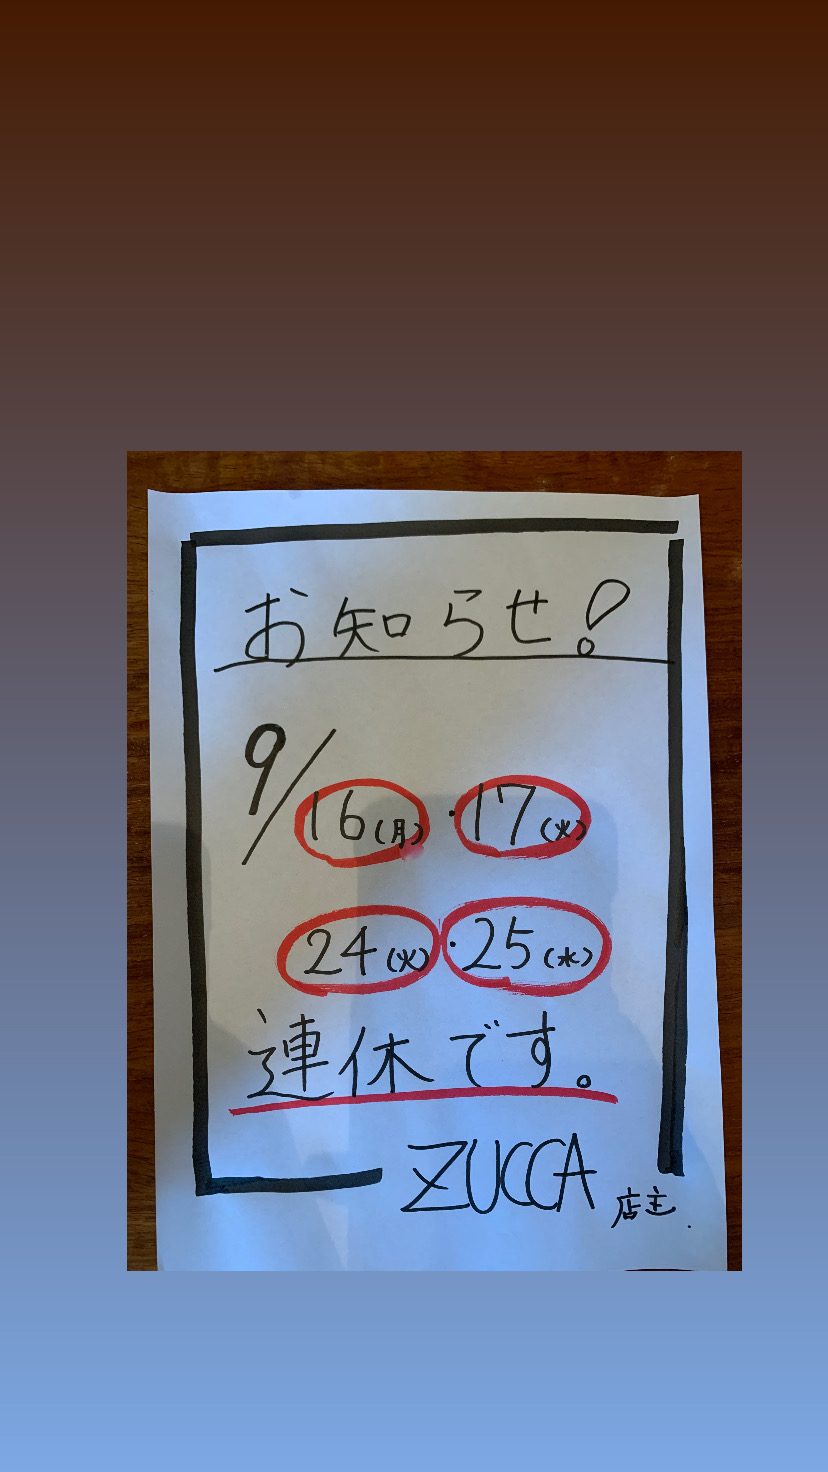 お知らせ!
9/16(月)・17(火)
24(火)・25(水)
連休です。
ZUCCA 店主.